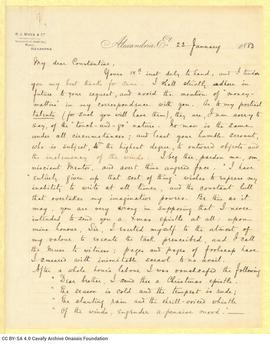 R. J. MOSS & Co
ALEXANDRIA
Alexandria, Eg. 22 January 1883
My dear Constantine,
Yours 14th inst. duly to hand, and I tender
you my best thanks for same. I shall strictly adhere in
future to your request, and avoid the mention of "money-
matters" in my correspondence with you. As to my poetical
talents (for such you will have them), they are, I am sorry to
say, of the "touch-and-go" nature. No man is the same
under all circumstances; and least your humble servant,
who is subject, to the highest degree, to outward objects and
the inclemency of the winds. I beg thee pardon me, om-
niscient Mentor, and avert thine angered face. I have
entirely given up that sort of thing; wishes to express my
inability to write at all times, and the constant toil
that overtakes my imaginative powers. Be this as it
may, you are very wrong in supposing that I never
intended to send you a Xmas epistle at all; upon
mine honour, Sir, I exerted myself to the utmost of
my valour to execute the task prescribed, and I call
the Muses to witness; pages and pages of foolscap have
I smeared with inimitable scrawl to no avail.
After a whole hour's labour I was vouchsafed the following
"Dear brother, I send thee a Christmas epistle;
"The season is cold and the tempest is rude;
"The slanting rain and the shrill-voiced whistle
"Of the winds, engender a pensive mood:—
CC BY-SA 4.0 Cavafy Archive Onassis Foundation